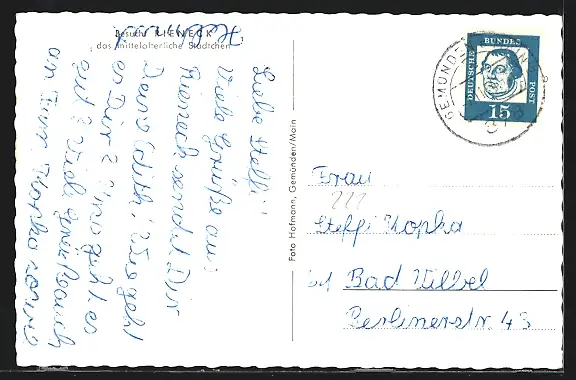 Besucht RIENECK
das mittelalterliche Städtchen
Liebe Steffi
Viele Grüße aus
Rieneck sendet Dir
Deine
Wie geht
es Dir? Uns geht es
gut. Viele Grüße auch
an
Foto Hofmann, Gemünden/Main
GEMÜNDEN
DEUTSCHE BUNDES POST
15
Frau
222
Steffi Kopka
Bad Vilbel
Berlinerstr. 43